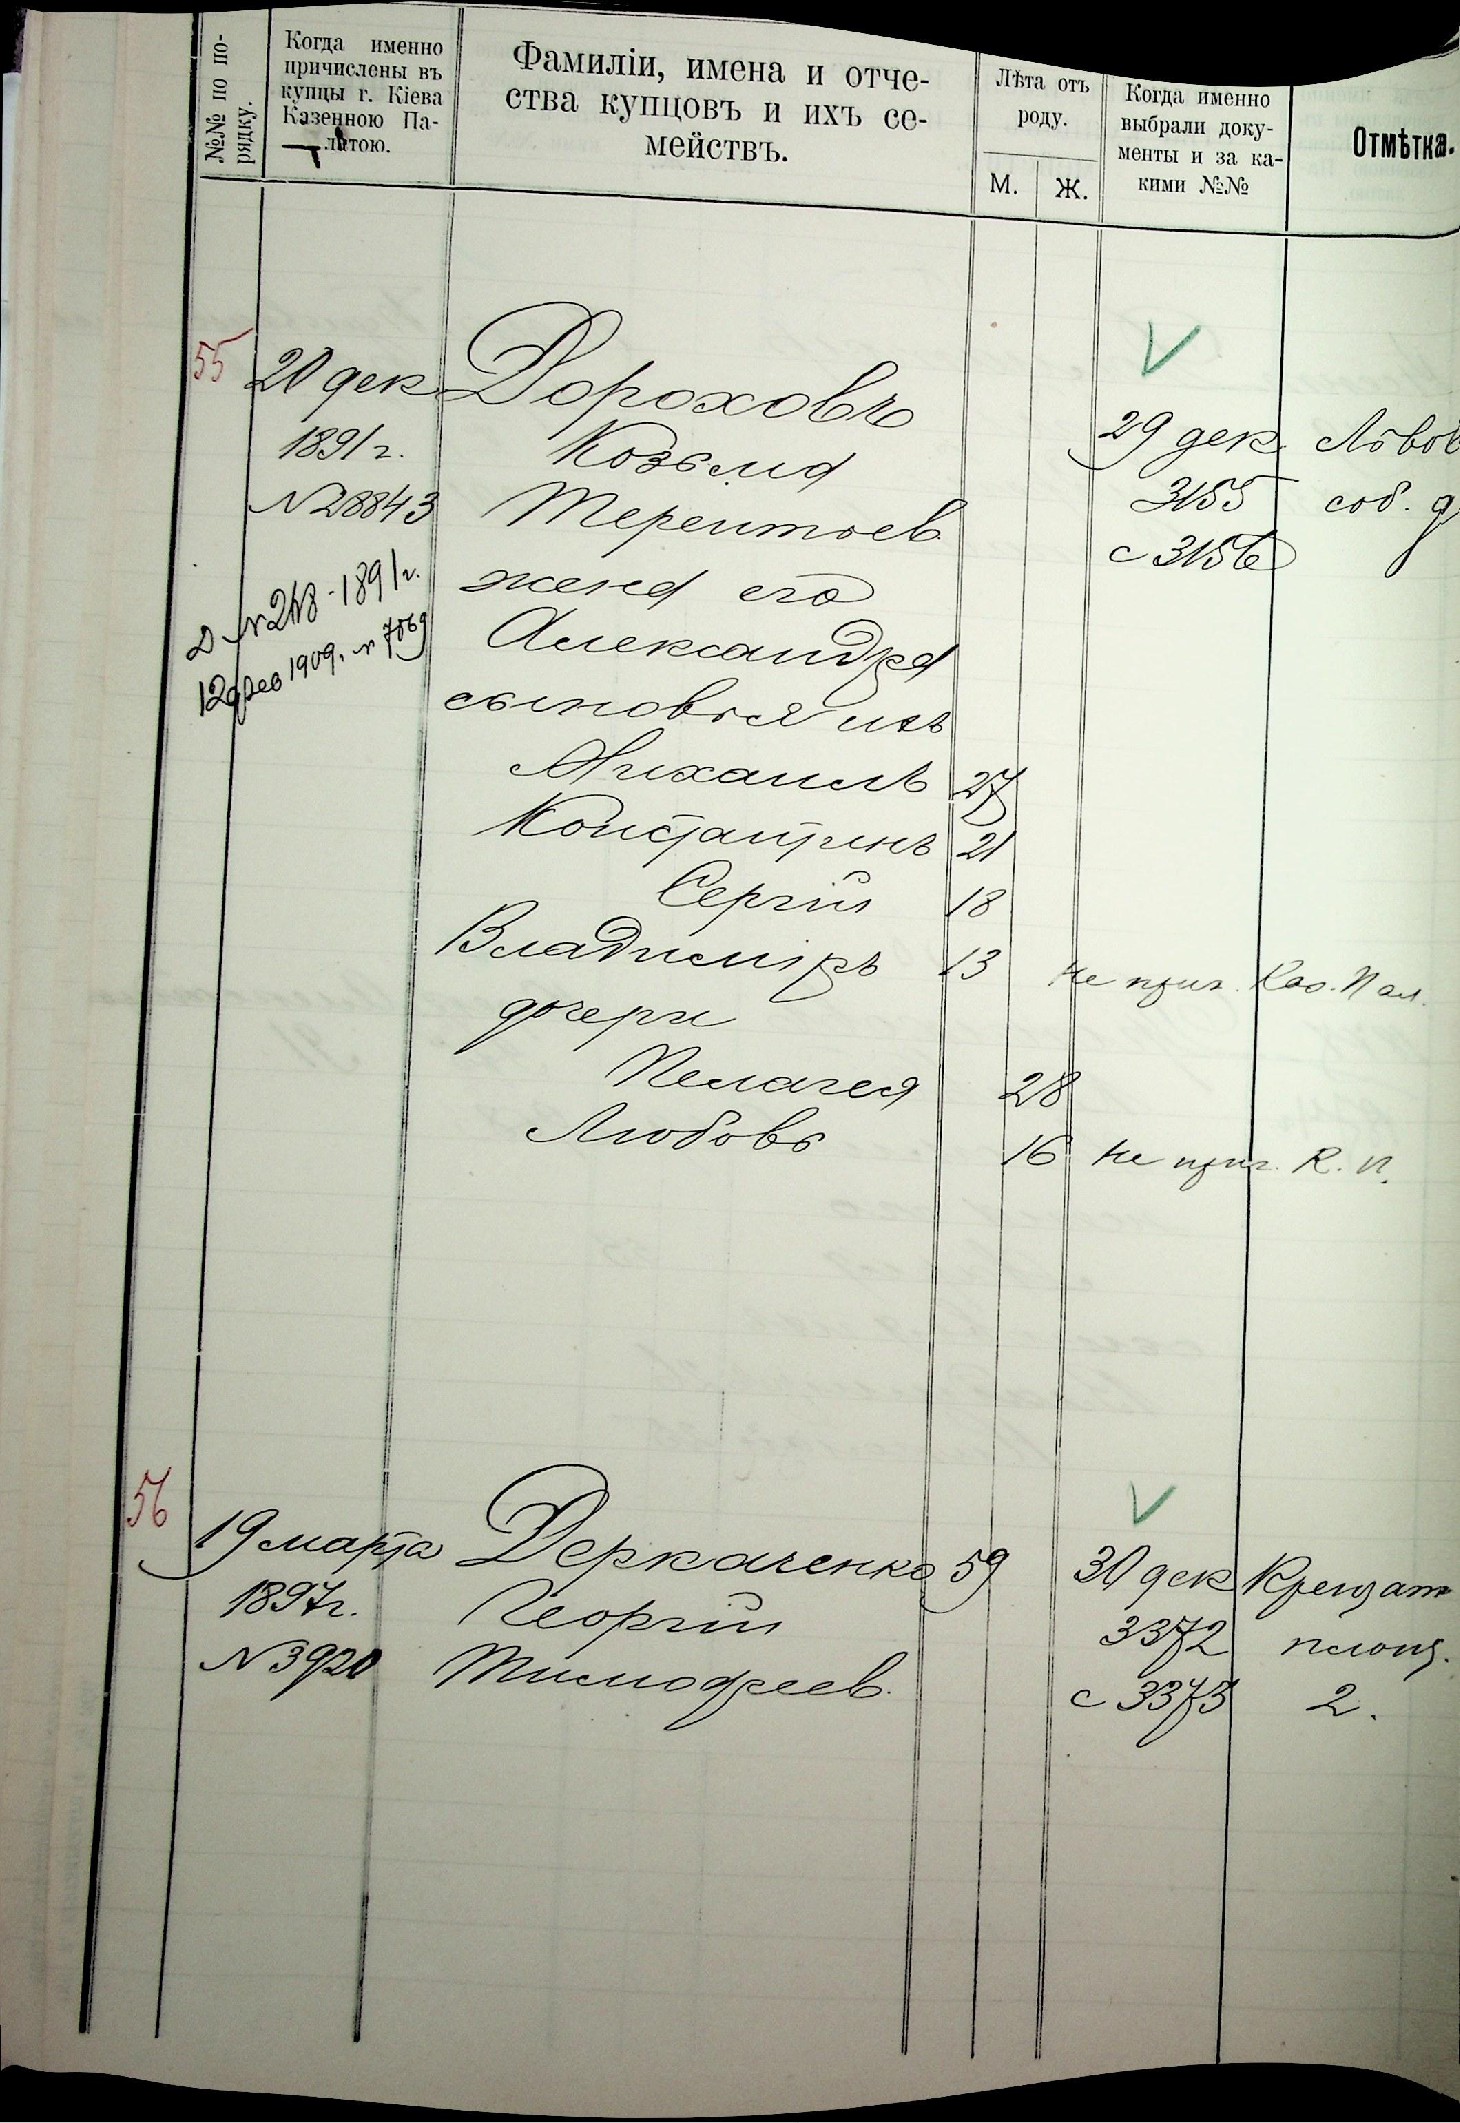 №№ по по-
рядку.
Когда именно
причислены въ
купцы г. Кіева
Казенною Па-
латою.
Фамиліи, имена и отче-
ства купцовъ и ихъ се-
мействъ.
Лѣта отъ
роду.
М.
Ж.
Когда именно
выбрали доку-
менты и за ка-
кими №№
Отмѣтка.
55
20 дек
1891 г.
N 28843
Дороховъ
Козьма
Терентьев
жена его
Александра
сыновья ихъ
Михаилъ 27
Константинъ 21
Сергій 18
Владиміръ 13 не приг. Каз. Пал.
дочери
Пелагея 28
Любовь 16 не приг. К. П.
29 дек
3155
с 3156
Львов
соб. д
Д N 218 - 1891 г.
12 фев 1909, N 7569
56
19 марта
1897 г.
N 3920
Деркаченко 59
Георгій
Тимофеев.
30 дек
3372
с 3373
Крещат
площ.
2.